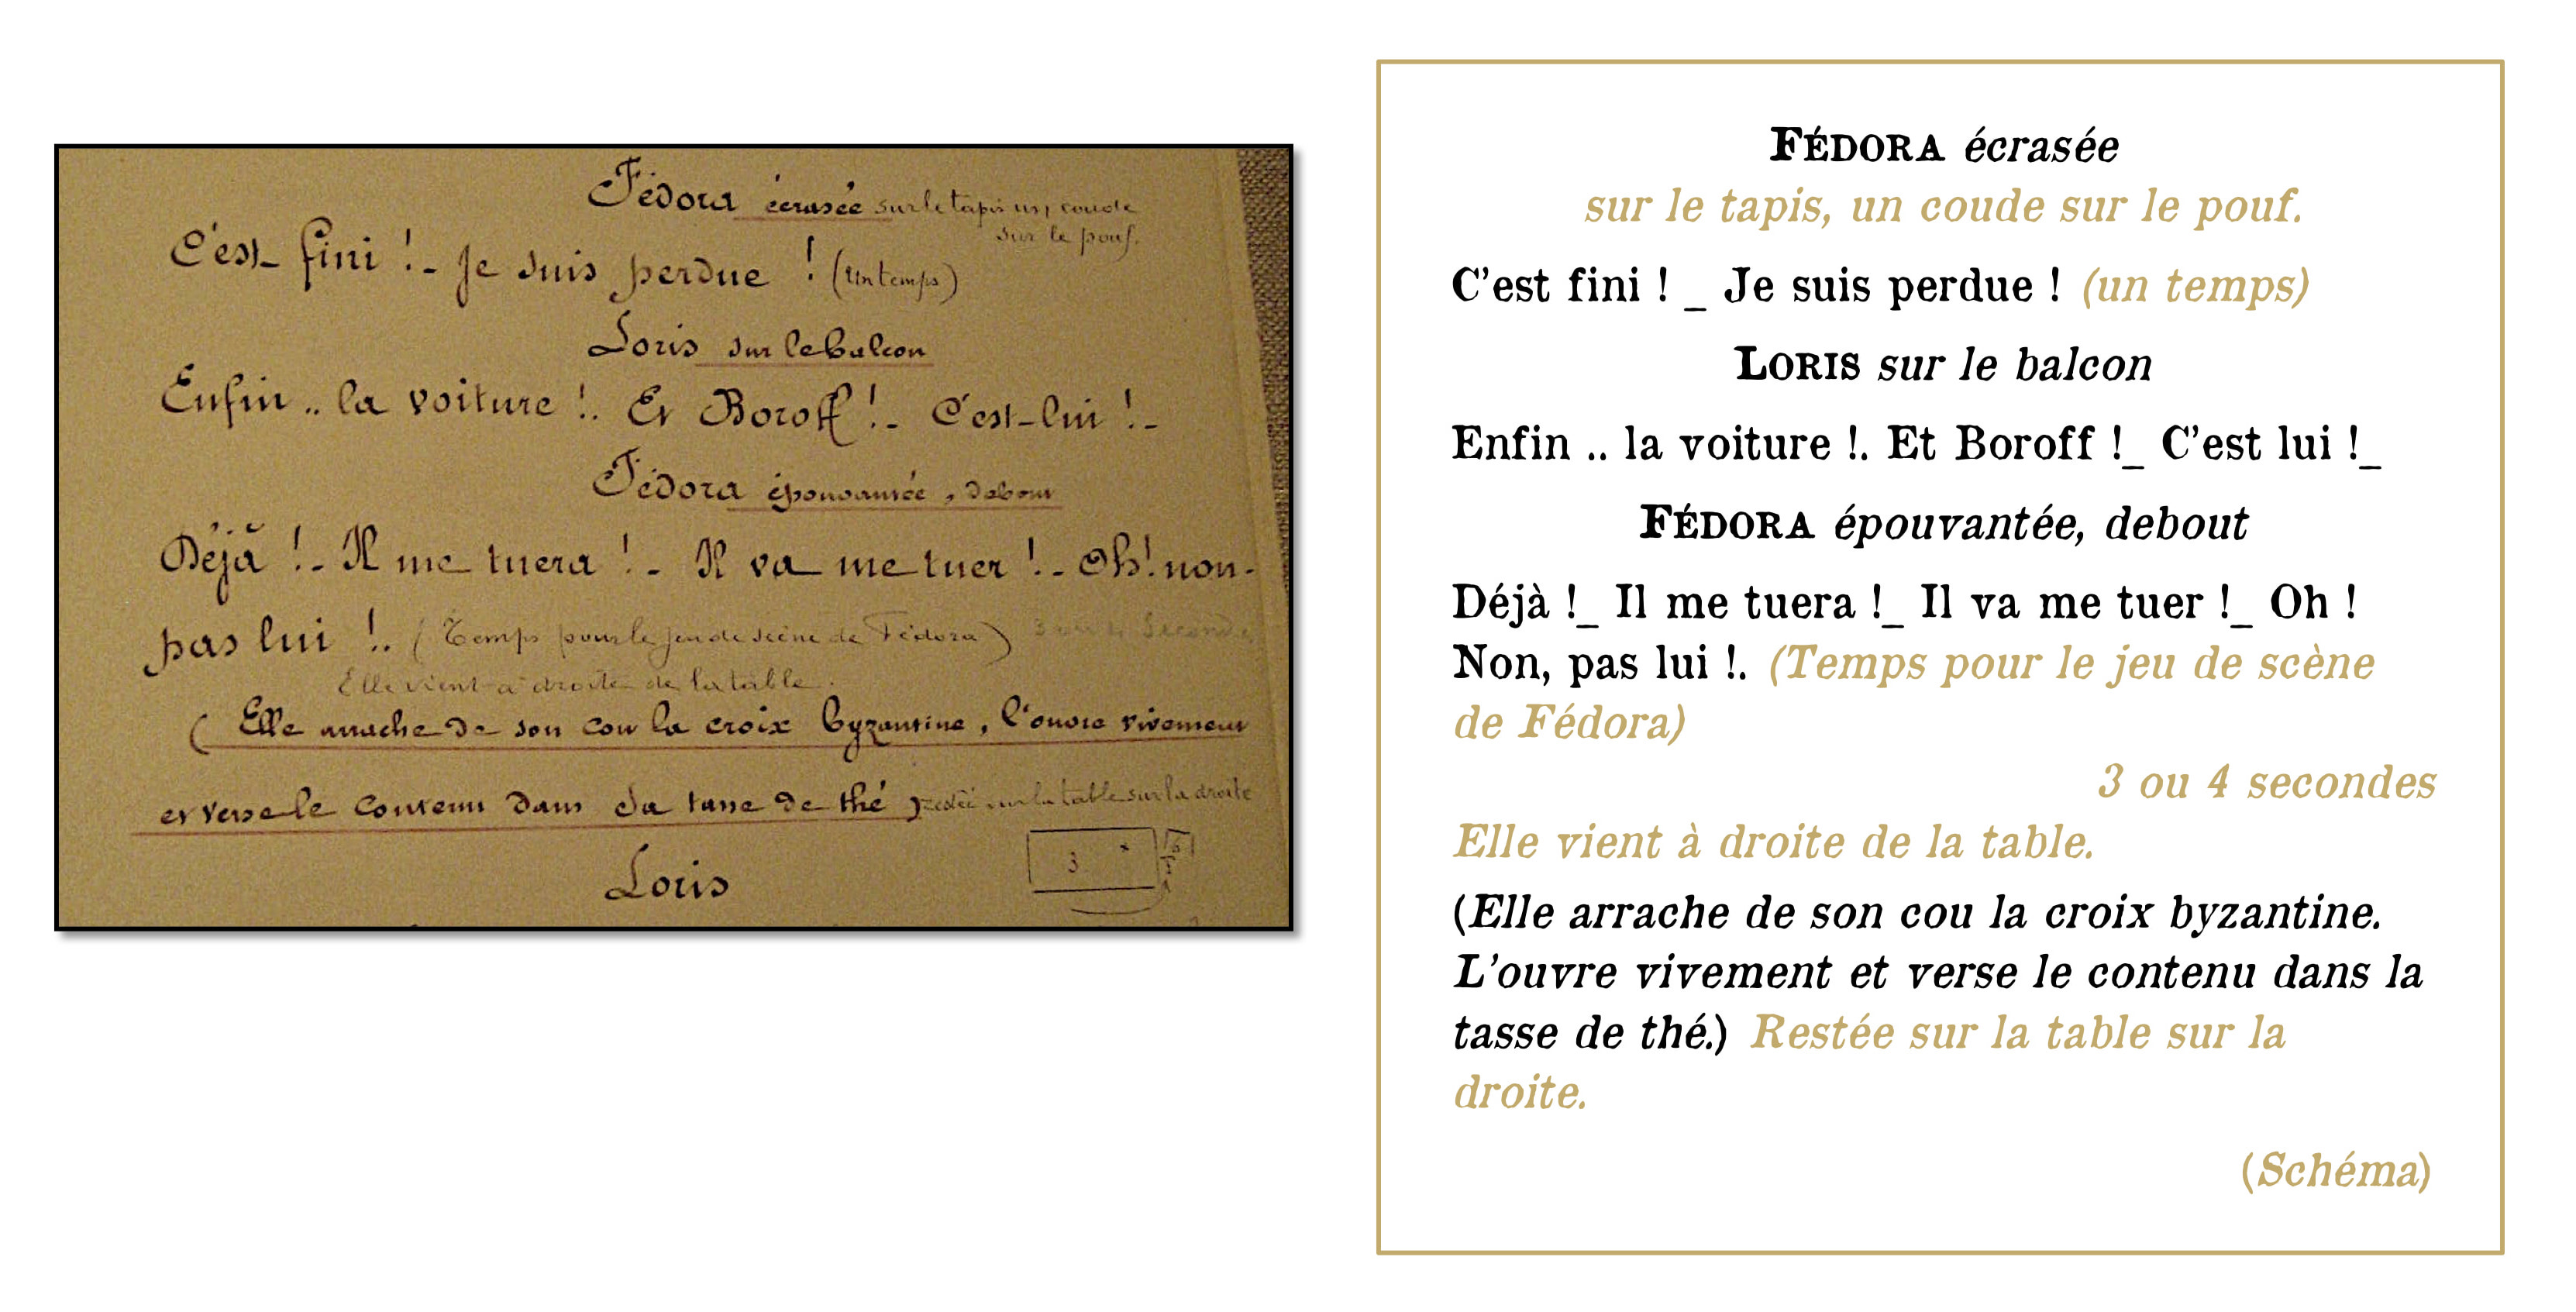 Fédora écrasée sur le tapis un coude
sur le pouf.
C'est fini ! _ Je suis perdue ! (Un temps)
Loris sur le balcon
Enfin .. la voiture !. Et Boroff ! _ C'est lui ! _
Fédora épouvantée, debout
Déjà ! _ Il me tuera ! _ Il va me tuer ! _ Oh ! non -
pas lui !. (Temps pour le jeu de scène de Fédora) 3 ou 4 Secondes
Elle vient à droite de la table.
( Elle arrache de son cou la croix byzantine, l'ouvre vivement
et verse le contenu dans la tasse de thé ) restée sur la table sur la droite
3
Loris
FÉDORA écrasée
sur le tapis, un coude sur le pouf.
C'est fini ! _ Je suis perdue ! (un temps)
LORIS sur le balcon
Enfin .. la voiture !. Et Boroff !_ C'est lui !_
FÉDORA épouvantée, debout
Déjà !_ Il me tuera !_ Il va me tuer !_ Oh !
Non, pas lui !. (Temps pour le jeu de scène
de Fédora)
3 ou 4 secondes
Elle vient à droite de la table.
(Elle arrache de son cou la croix byzantine.
L'ouvre vivement et verse le contenu dans la
tasse de thé.) Restée sur la table sur la
droite.
(Schéma)